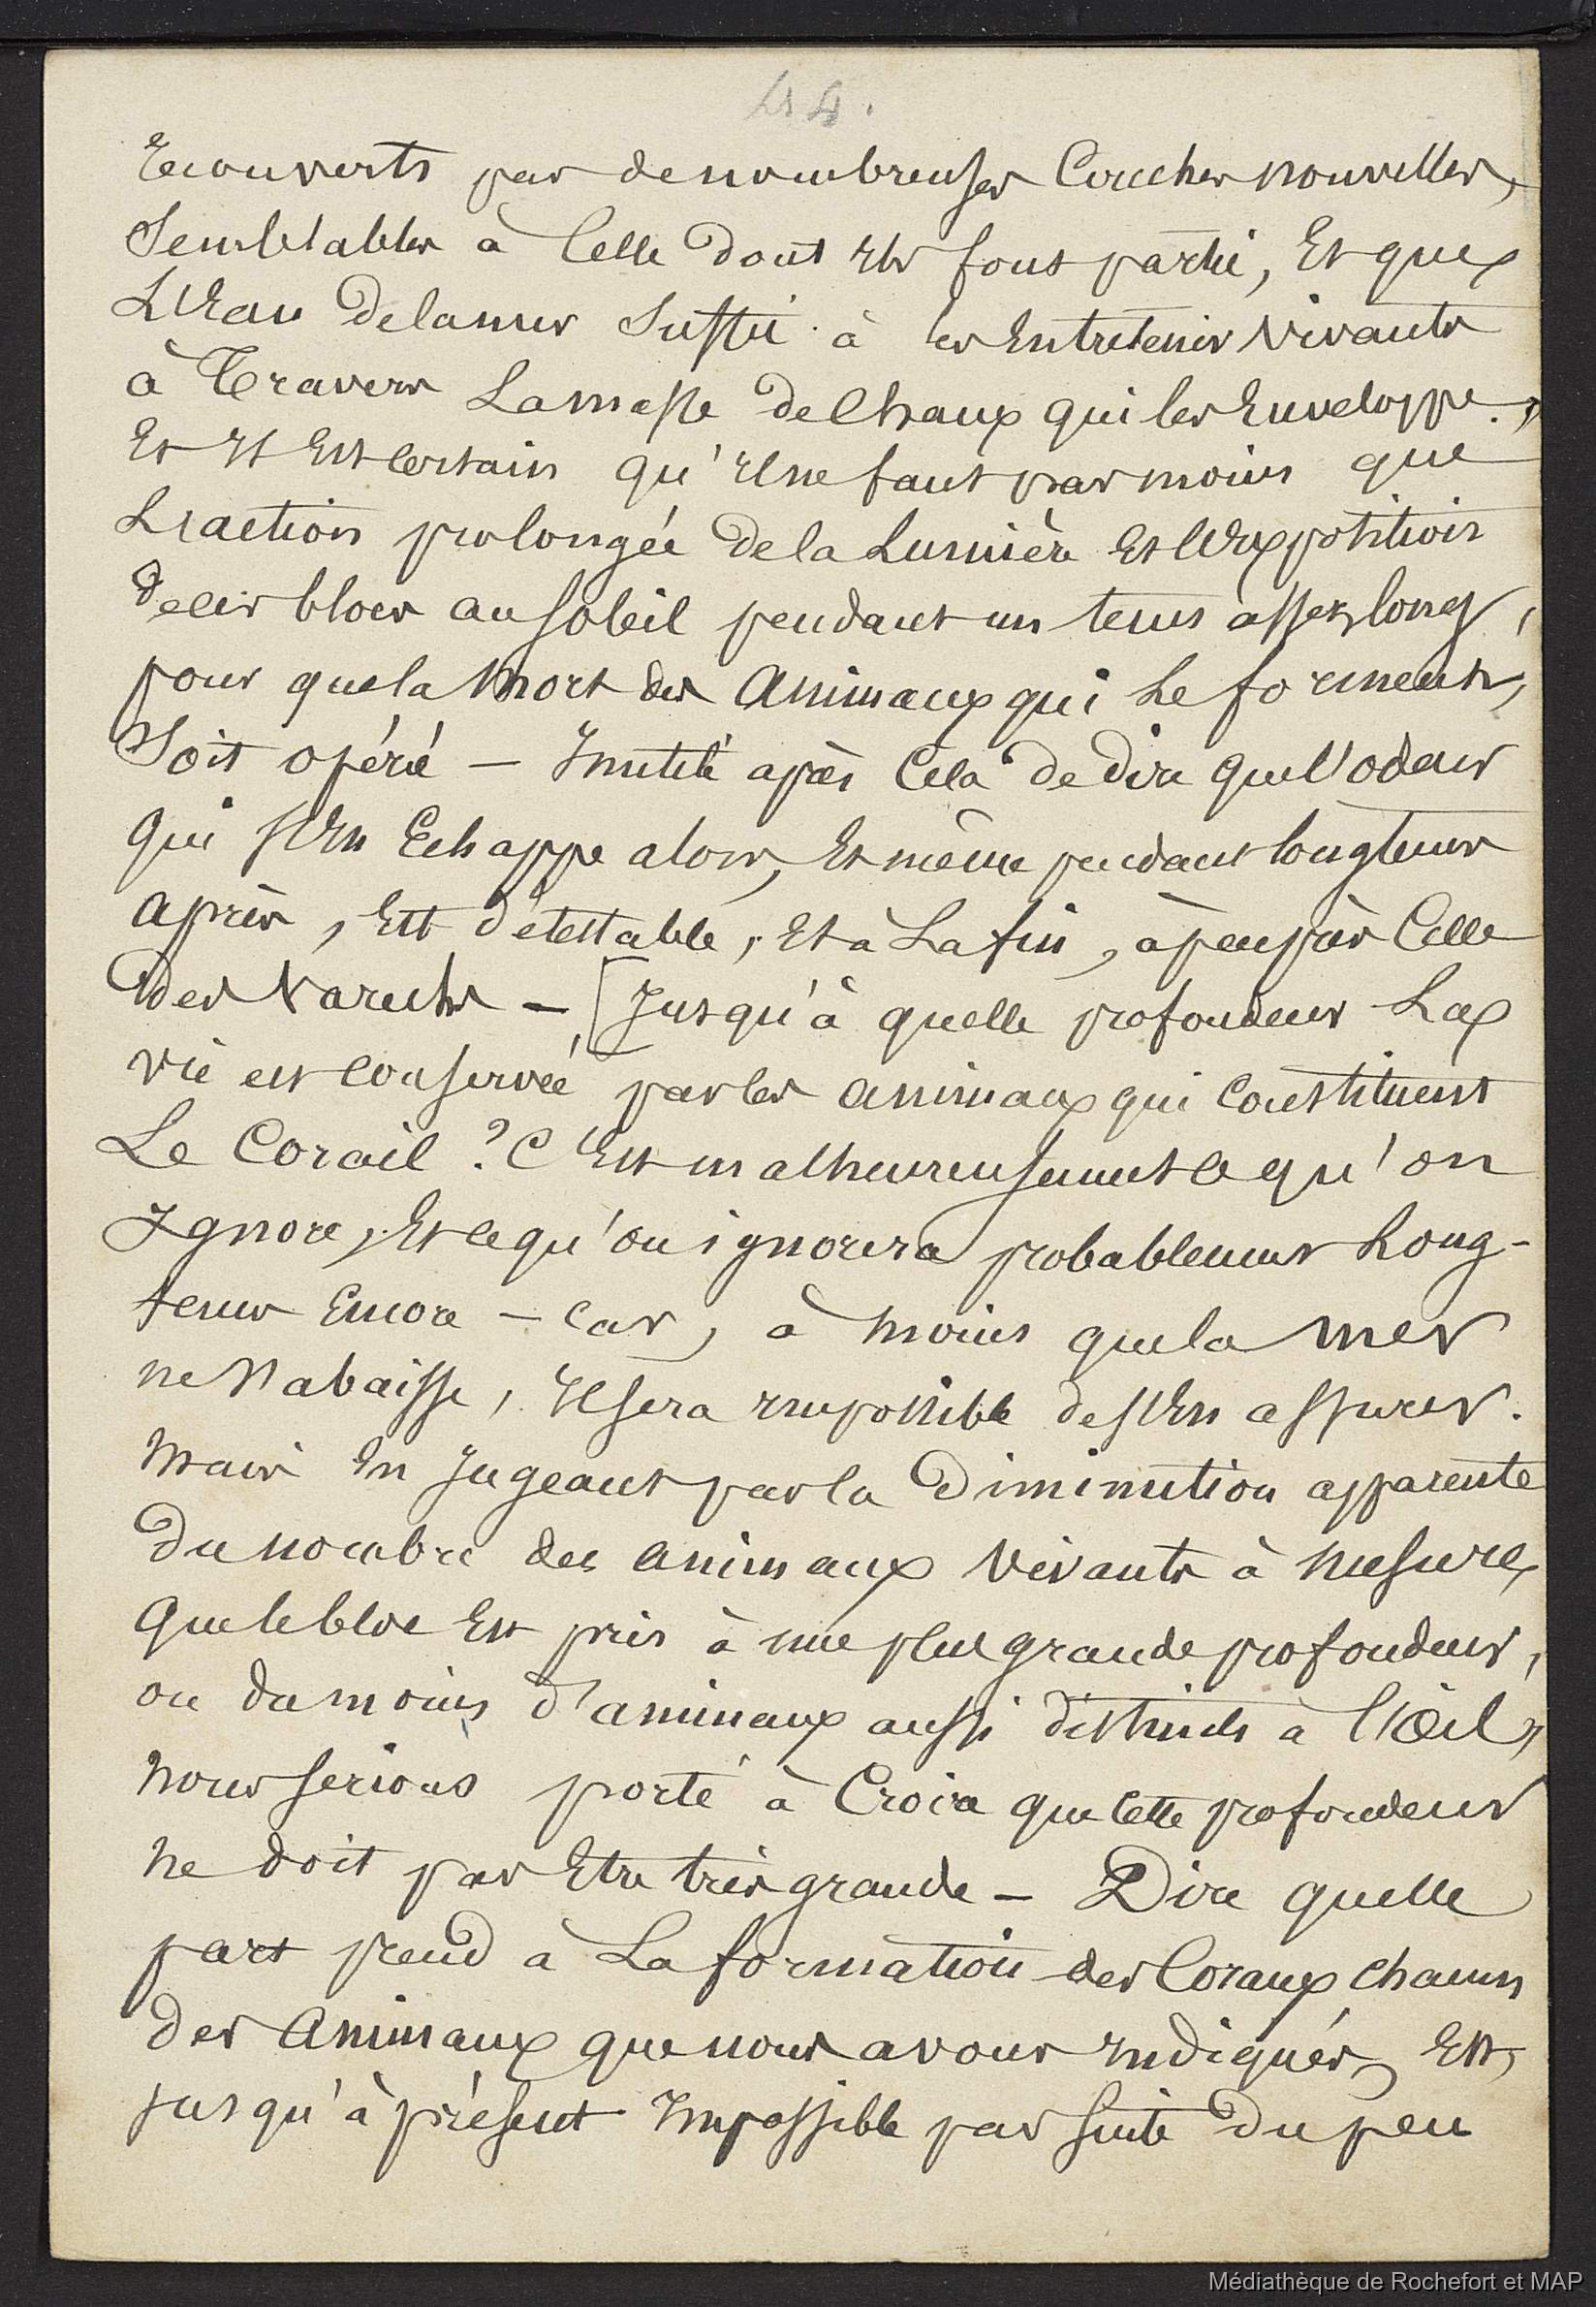 44.
recouverts par de nombreuses Couches nouvelles,
Semblables à Celle dont ils font partie, Et que
L'Eau de la mer Suffit à les Entretenir Vivants
à Travers La masse de Chaux qui les Enveloppe.,
Et Il Est Certain qu'il ne faut pas moins que
L'action prolongée de la Lumière et l'Exposition
de ces blocs au Soleil pendant un tems assez long,
pour que la Mort des Animaux qui Le forment,
Soit opéré — Inutile après Cela de dire que l'odeur
Qui s'En Echappe alors, Et même pendant longtems
Après, Est détestable, Et à La fin, à peu près Celle
Des Varechs — [Jusqu'à quelle profondeur La
vie est Conservée par les animaux qui Constituent
Le Corail ? C'Est malheureusement ce qu'on
Ignore, Et ce qu'on ignorera probablement Long-
tems Encore — Car, à Moins que la mer
ne s'abaisse, Il sera impossible de s'En assurer.
Mais En Jugeant par la Diminution apparente
Du nombre des animaux Vivants à Mesure
Que le bloc Est pris à une plus grande profondeur,
ou du moins d'animaux aussi distincts à l'Œil,
Nous serions porté à Croire que Cette profondeur
Ne doit pas Etre très grande — Dire quelle
part prend à La formation des Coraux Chacun
Des Animaux que nous avons indiqués, Est,
jusqu'à présent Impossible par Suite du peu
Médiathèque de Rochefort et MAP